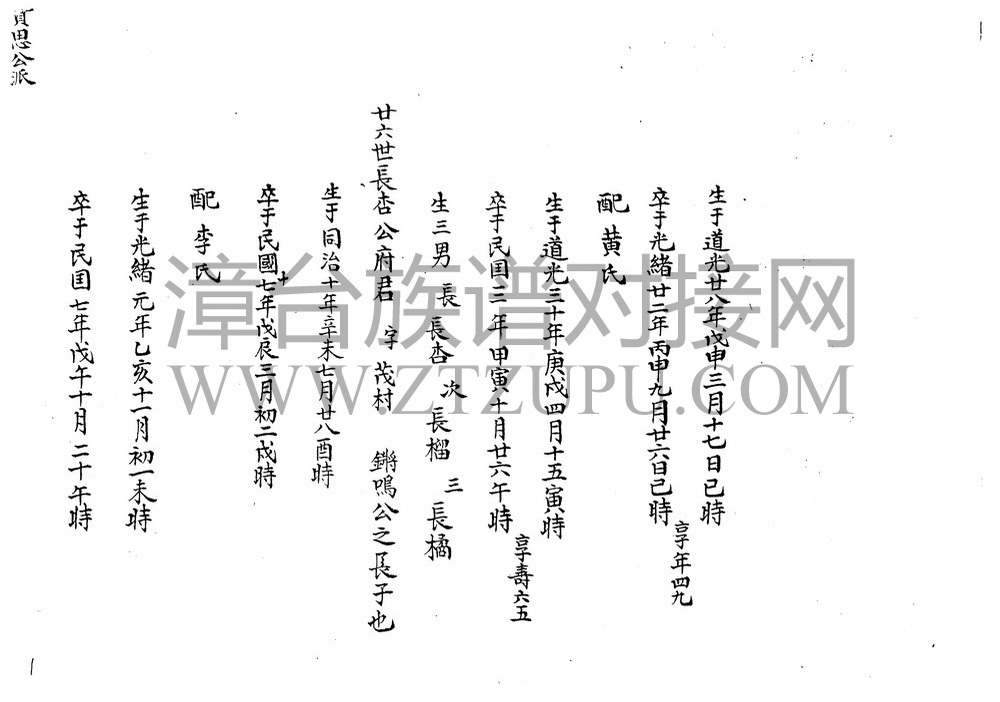 生于道光廿八年戊申三月十七日巳時
卒于光緒廿二年丙申九月廿六日巳時 享年四九
配黄氏
生于道光三十年庚戌四月十五寅時
卒于民国三年甲寅十月廿六午時 享壽六五
生三男長長杏次長榴三長橘
廿六世長杏公府君 字茂村 鏘鳴公之長子也
生于同治十年辛未七月廿八酉時
卒于民國十七年戊辰三月初二戌時
配李氏
生于光緒元年乙亥十一月初一未時
卒于民国七年戊午十月二十午時
思公派
漳台族谱对接网
WWW.ZTZUPU.COM